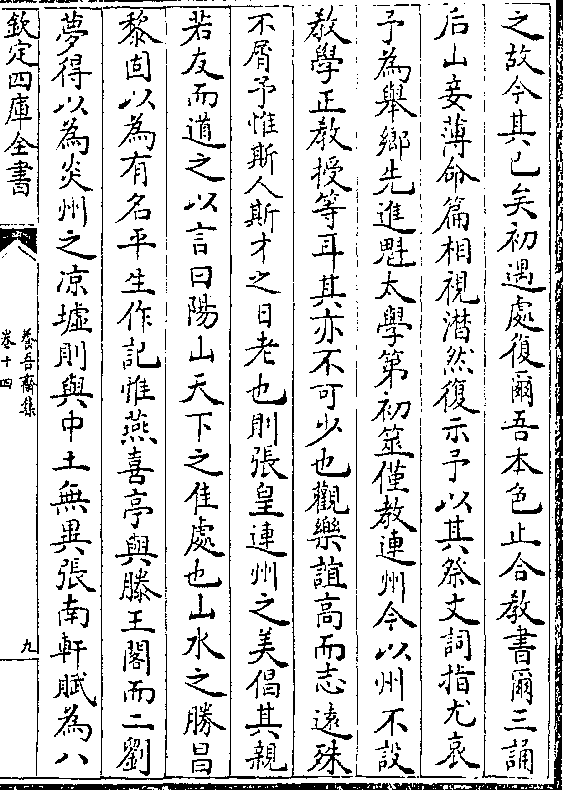 之故今其已矣初遇處復爾吾本色止合教書爾三誦
后山妾薄命篇相視潸然復示予以其祭文詞指尤哀
予為舉鄉先進魁太學第初筮僅教連州今以州不設
教學正教授等耳其亦不可少也觀樂誼高而志遠殊
不屑予惟斯人斯才之日老也則張皇連州之美倡其親
若友而道之以言曰陽山天下之佳處也山水之勝昌
黎固以為有名平生作記惟燕喜亭與滕王閣而二劉
夢得以為炎州之凉墟則與中土無異張南軒賦為八
欽定四庫全書
養吾齋集
卷十四
九